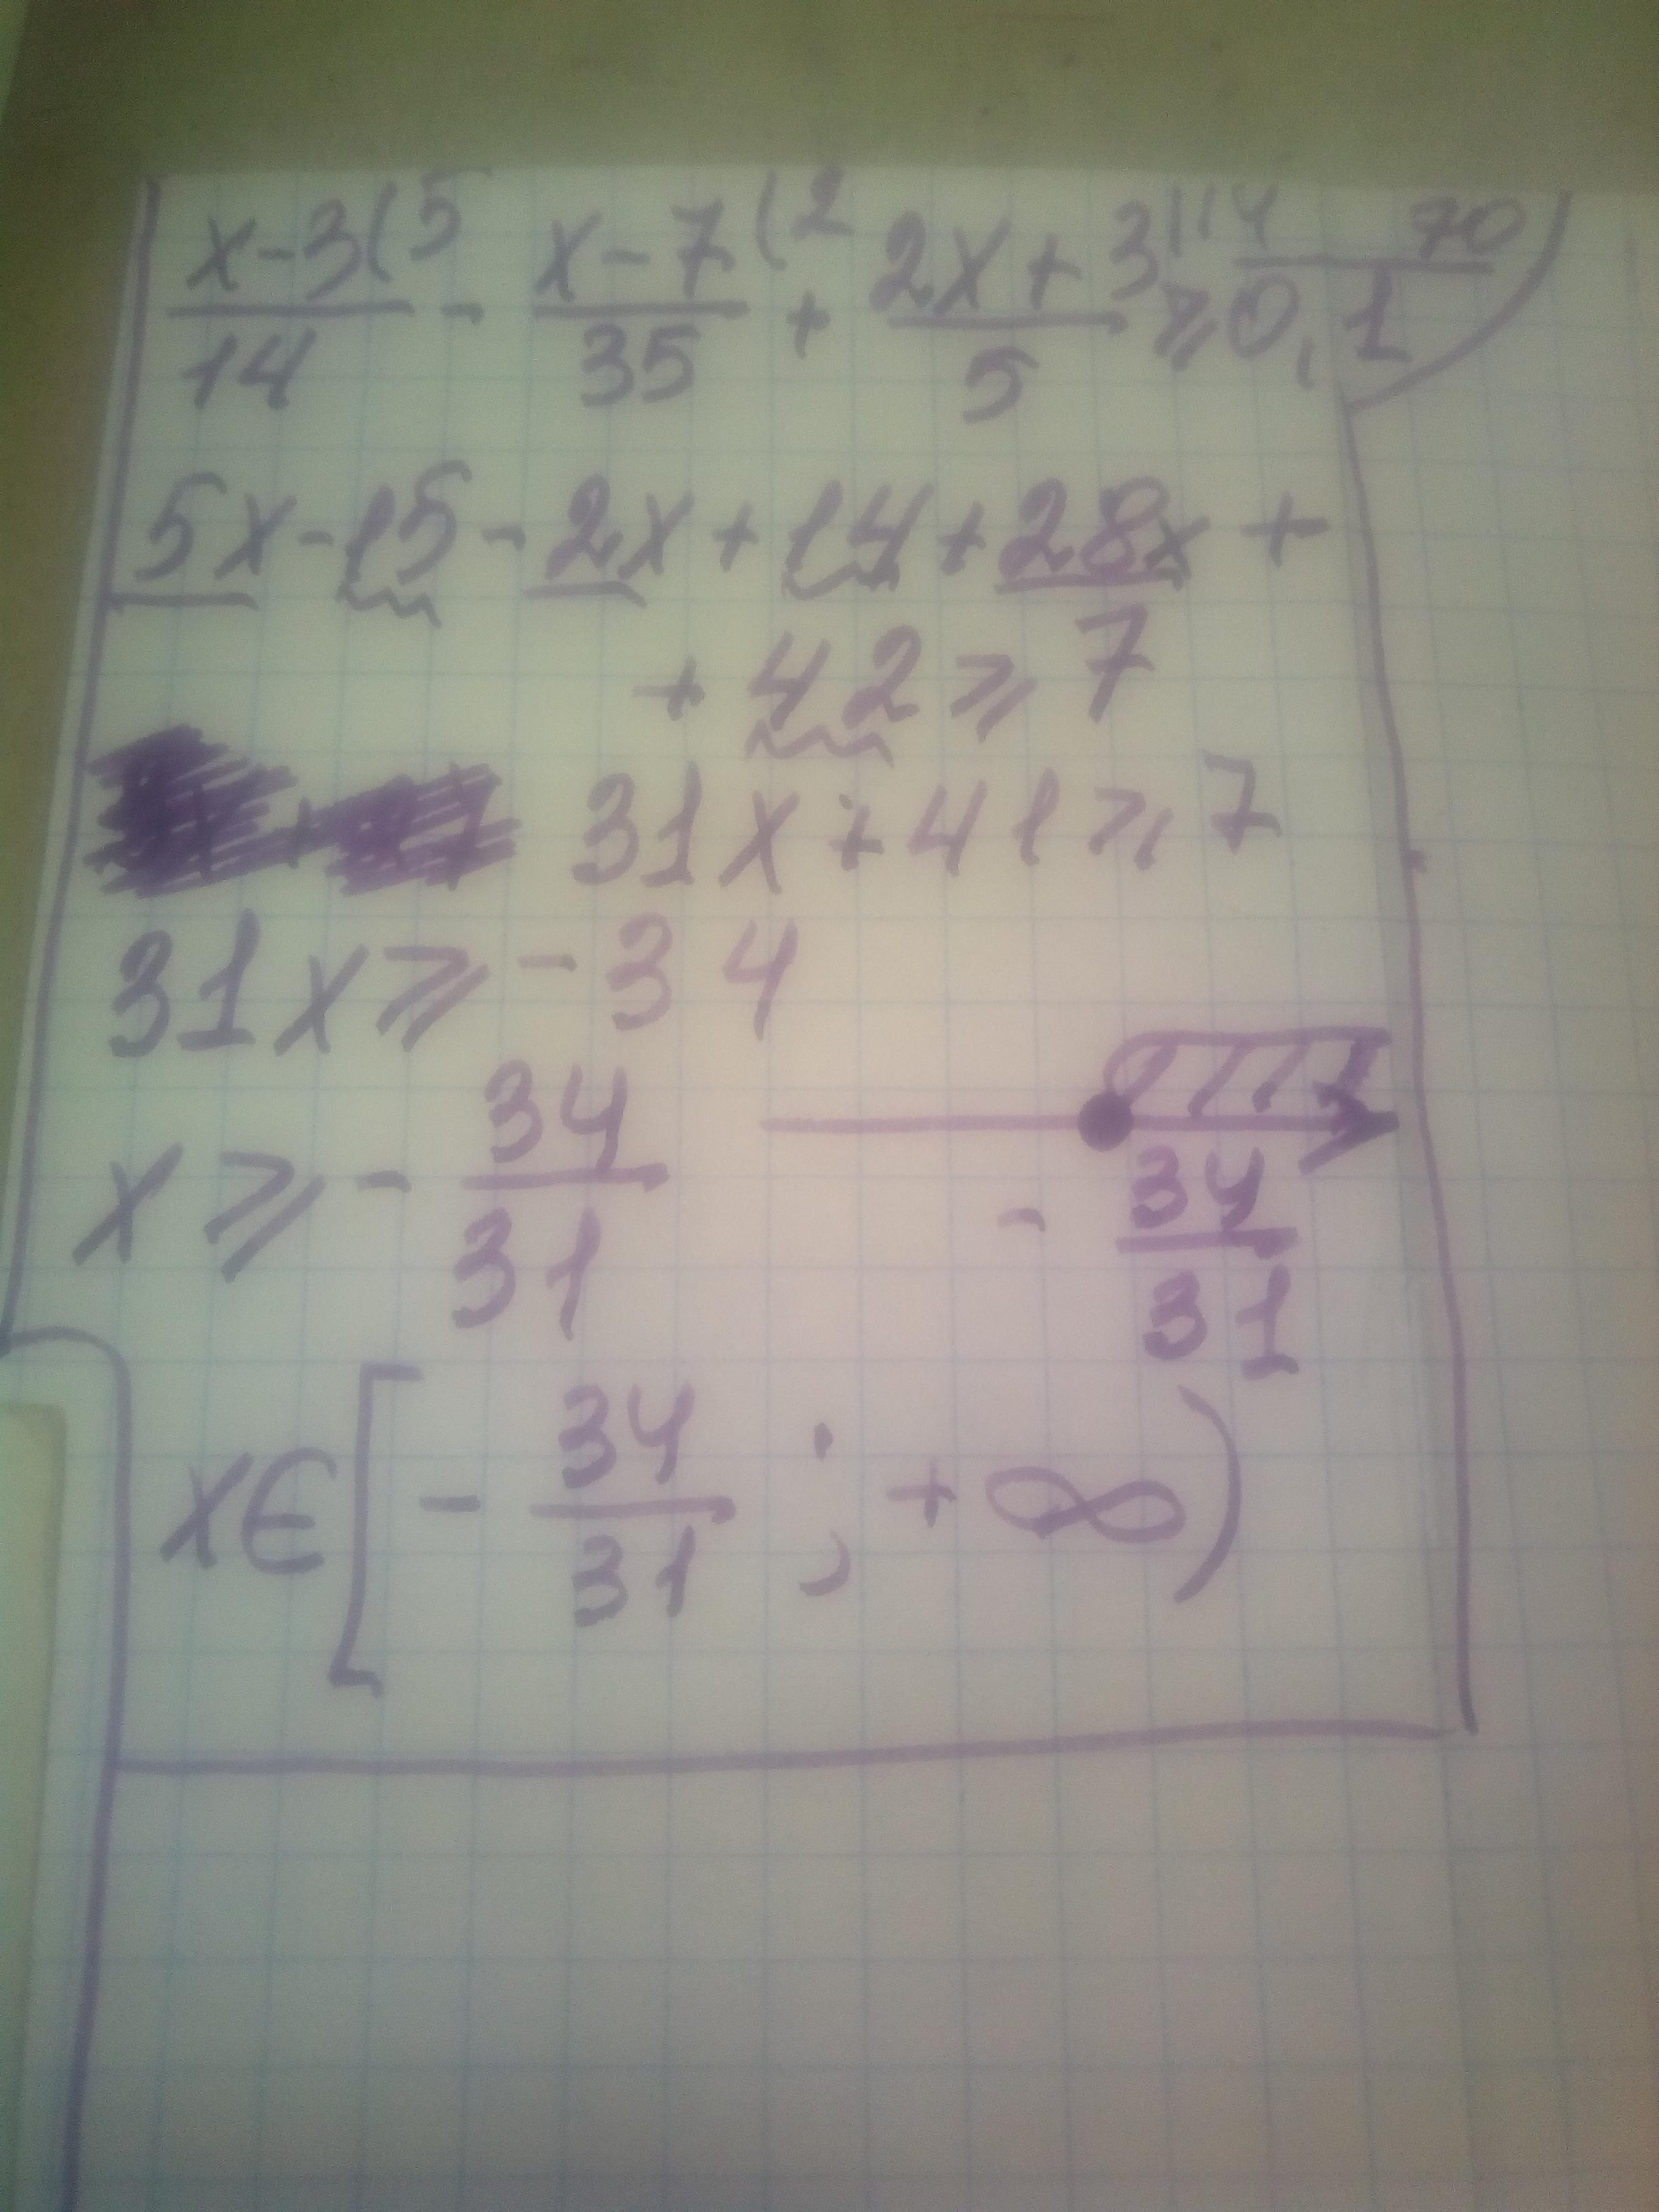 x-3(5 / 14 - x-7(2 / 35 + 2x+3(14 / 5 ⩾ 0,1 70
5x-15-2x+14+28x+
+42⩾7
31x+41⩾7
31x⩾-34
x⩾-34/31
-34/31
x∈[-34/31;+∞)